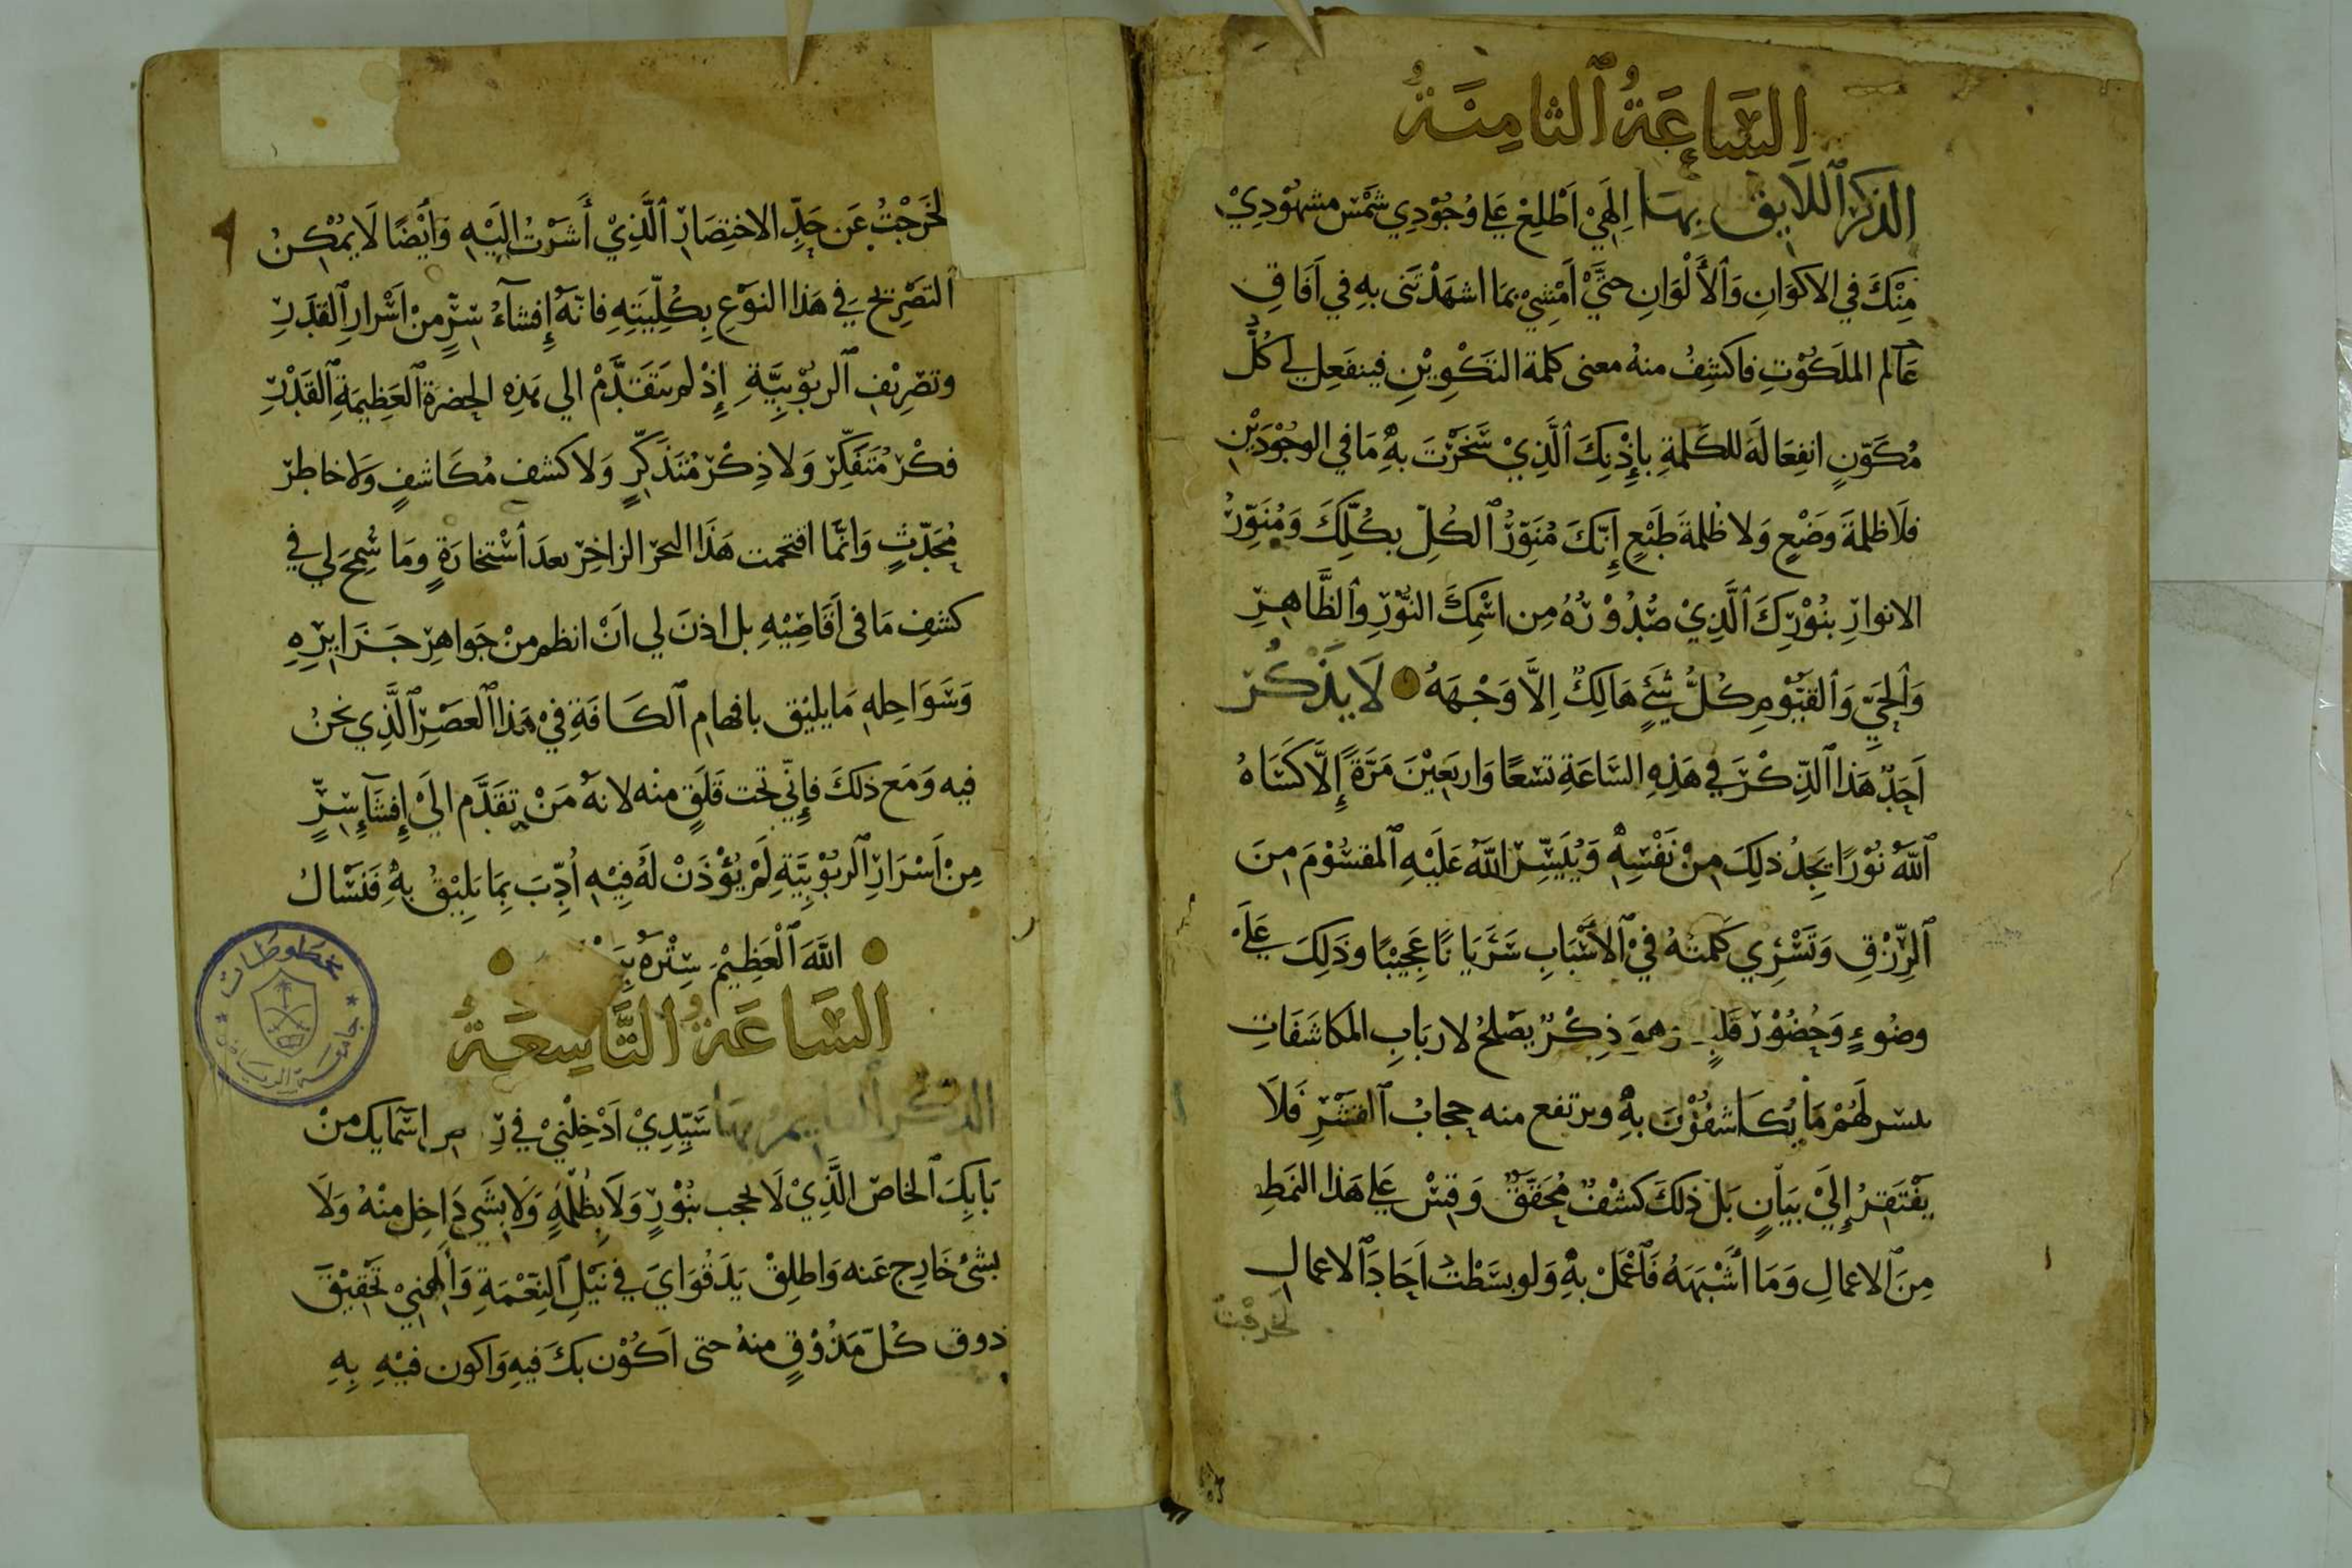 السَّاعَةُ ٱلثامِنَةُ
الذِكرُ ٱللَايق بِهَا اِلهَيْ اَطْلِعْ عَلي وُجُوْدِي شَمْسَ مشهُوْدِيْ
مِنْكَ في الاكوَانِ وَٱلأَلْوَانِ حتَّيْ اَمْشِيْ بمَا اشهَدْتَنى بهِ في اَفَاقِ
عَالم الملَكُوْتِ فاكشِفُ منهُ معنى كلمة التكْوِيْنِ فينفَعِل لي كُلُّ
مُكَوّنٍ انفِعَالَهَ للكَلمةِ بإِذْنِكَ ٱلَّذِيْ سَخَّرْتَ بهِ مَا في الوجُوْدَيْنِ
فلَا ظلمةَ وَضْعٍ وَلا ظُلمةَ طَبْعٍ إِنّكَ مُنَوِّرُ ٱلكُلِّ بكُلِّكَ وَمُنَوِّرُ
الانوارِ بنُوْرِكَ ٱلَّذِيْ صُدُوْرُهُ مِن اسْمِكَ النّوْرِ وٱلظَّاهِرِ
وَٱلحَيِّ وَٱلقَيُّوْمِ كُلُّ شَيْءٍ هَالِكٌ اِلَّا وَجْهَهُ لَا يَذْكُرُ
اَحَدٌ هَذا ٱلذِّكْرَ في هَذِهِ السَّاعَةِ تسْعًا وَاربَعِيْنَ مَرَّةً إِلّا كَسَاهُ
ٱللّهُ نُوْرًا يَجِدُ ذلِكَ مِنْ نَفْسِهِ وَيُيَسِّرُ اللّهُ عَلَيْهِ ٱلمقسُوْمَ مِنَ
ٱلرِّزْقِ وَتَسْرِي كَلمتهُ فيْ ٱلأسْبَابِ سَرَيَانًا عَجِيْبًا وذَلِكَ عَلَيْ
وضُوءٍ وَحُضُوْرِ قَلْبٍ وهوَ ذِكْرٌ يَصْلحُ لاربَابِ المكاشَفَاتِ
يسر لَهُمْ مَا يُكَاشفُوْنَ بهِ ويرتفع منه حجابُ ٱلفشْرِ فَلَا
يَفْتَقِرُ إِلَيْ بيَانٍ بَلْ ذلكَ كشْفٌ مُحَقَّقٌ وَقِسْ عَلي هَذا النمَطِ
مِنَ ٱلاعمالِ وَمَا أشْبَهَهُ فَٱعْمَلْ بهِ وَلو بسَطْتُ اَحَادَ ٱلاعمالِ
لخرجْتُ
لخَرَجْتُ عَن حَدِّ الاختِصَارِ ٱلَّذِيْ أَشَرْتُ إِلَيْهِ وَأَيْضًا لَا يمُكِنُ
ٱلتصْرِيْحُ في هَذا النوْعِ بِكُلِّيَتِهِ فانّهُ إِفشاءُ سِرٍّ مِنْ اَسْرارِ ٱلقَدَرِ
وتصْرِيْفِ ٱلربُوْبِيَّةِ إِذْ لم يَتَقَدَّمْ الي هَذِهِ الحضرَةِ ٱلعَظِيْمَةِ ٱلقَدْرِ
فكْرُ مُتَفَكِّرٍ وَلا ذِكْرُ مُتَذَكِّرٍ وَلا كشف مُكَاشفٍ وَلا خاطِرُ
مُحَدِّثٍ وَانَّما اقتحمت هَذَا البحرَ الزاخِرَ بعدَ ٱسْتخارَةٍ وَمَا سُمِحَ لي في
كشفِ مَا فى أَقَاصِيْهِ بل اذنَ لي اَنْ انظم منْ جَواهِرِ جَزَايِرِهِ
وَسَوَاحِلهِ مَا يليْق بافهامِ ٱلكَافَةِ فيْ هَذا ٱلعصْرِ ٱلَّذِي نحْنُ
فيه وَمَع ذلكَ فإِنّي تحت قَلَقٍ منْه لانهُ مَنْ تقَدَّم الَيْ إِفشَاءِ سِرٍّ
مِنْ اَسْرَارِ ٱلربُوْبيَّةِ لَمْ يُؤْذَنْ لَهُ فيْهِ أُدِّبَ بِمَا يَليْقُ بهِ فَنَسْالُ
اللّهَ ٱلْعَظِيْمَ سِتْرَهُ
السَّاعَةُ التَّاسِعَةُ
الذكر القايم بهَا سَيِّدِيْ اَدْخِلْنيْ في اسْمَايكَ منْ
بَابِكَ ٱلخاصّ الَّذِيْ لَا يحجب بنُوْرٍ وَلَا بِظُلْمَةٍ وَلَا بشَيءٍ دَاخِل منْهُ وَلَا
بشَئ خَارِج عَنه وَاطلِقْ يَدَ قُوَايَ في نَيْلِ ٱلنِعْمَةِ وَأَلهِمْنِيْ تحَقِيْقَ
ذوق كُلّ مَذُوْقٍ منهُ حتى اَكُوْن بكَ فيهِ وَاكون فيْهِ بِهِ
مخطوطات
جامعة الرياض